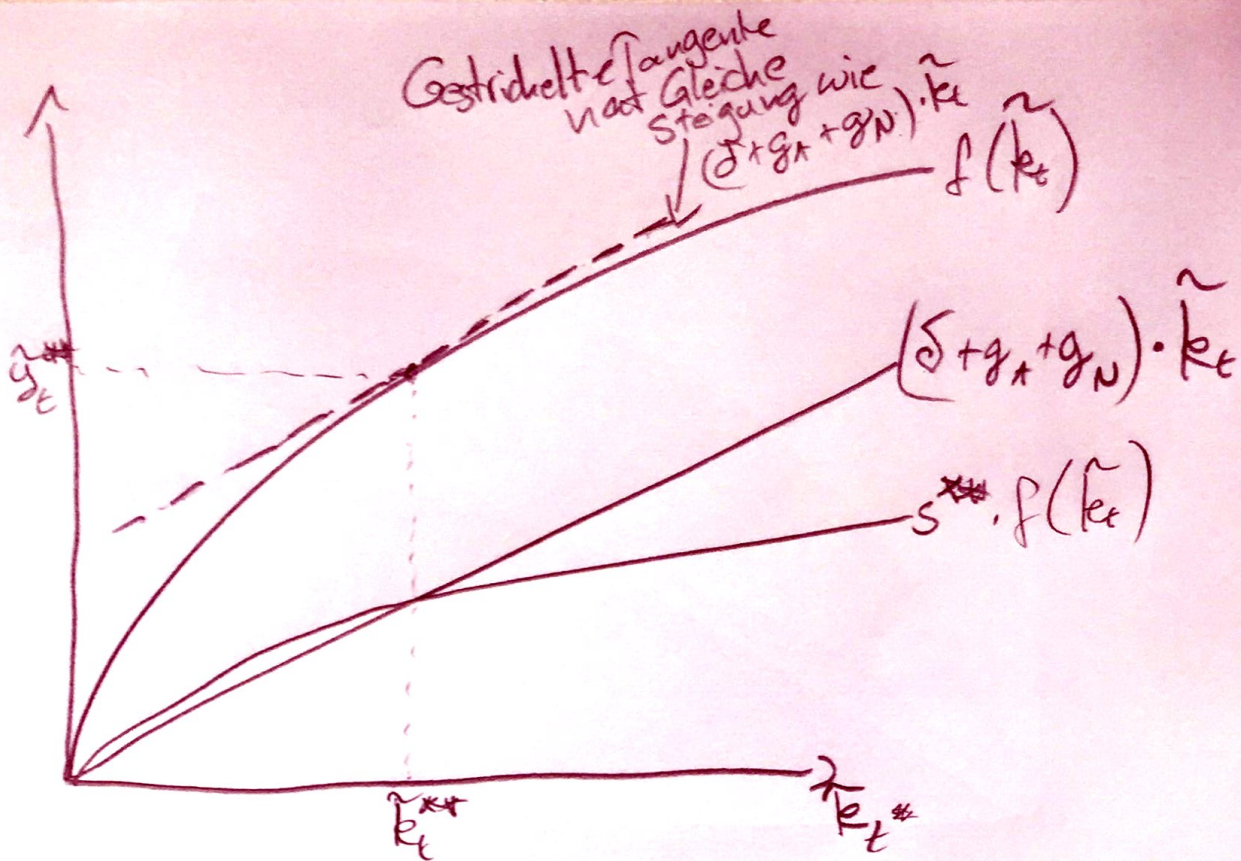 Gestrichelte Tangente
hat Gleiche
Steigung wie
(δ+g_A+g_N)·k̃_t
f(k̃_t)
(δ+g_A+g_N)·k̃_t
ỹ_t**
s**·f(k̃_t)
k̃_t**
k̃_t*